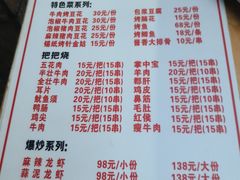 特色菜系列:
牛肉烤豆花 30元/份 包浆豆腐 25元/份
泡椒牛肉豆花 30元/份 烤脑花 15元/份
泡椒猪肉豆花 25元/份 烤鱼
麻辣猪肉豆花 25元/份 烤鲫鱼 15元/条
锡纸烤针金菇 15元/份 酱香大排骨 10元/串
把把烧
五花肉 15元/把(15串) 掌中宝 15元/把(15串)
半壮牛肉 20元/把(15串) 羊肉 20元/把(15串)
全壮牛肉 20元/把(15串) 郡肝 15元/把(15串)
耳片 20元/把(15串) 鸡皮 15元/把(15串)
鱿鱼须 20元/把(15串) 鼻筋 15元/把(15串)
鸭肠 15元/把(15串) 毛肚 15元/把(15串)
鸡尖 15元/把(15串) 红侯 15元/把(15串)
牛肉 20元/把(15串) 瘦牛肉 15元/把(15串)
爆炒系列:
麻辣龙虾 98元/小份 138元/大份
蒜泥龙虾 98元/小份 138元/大份